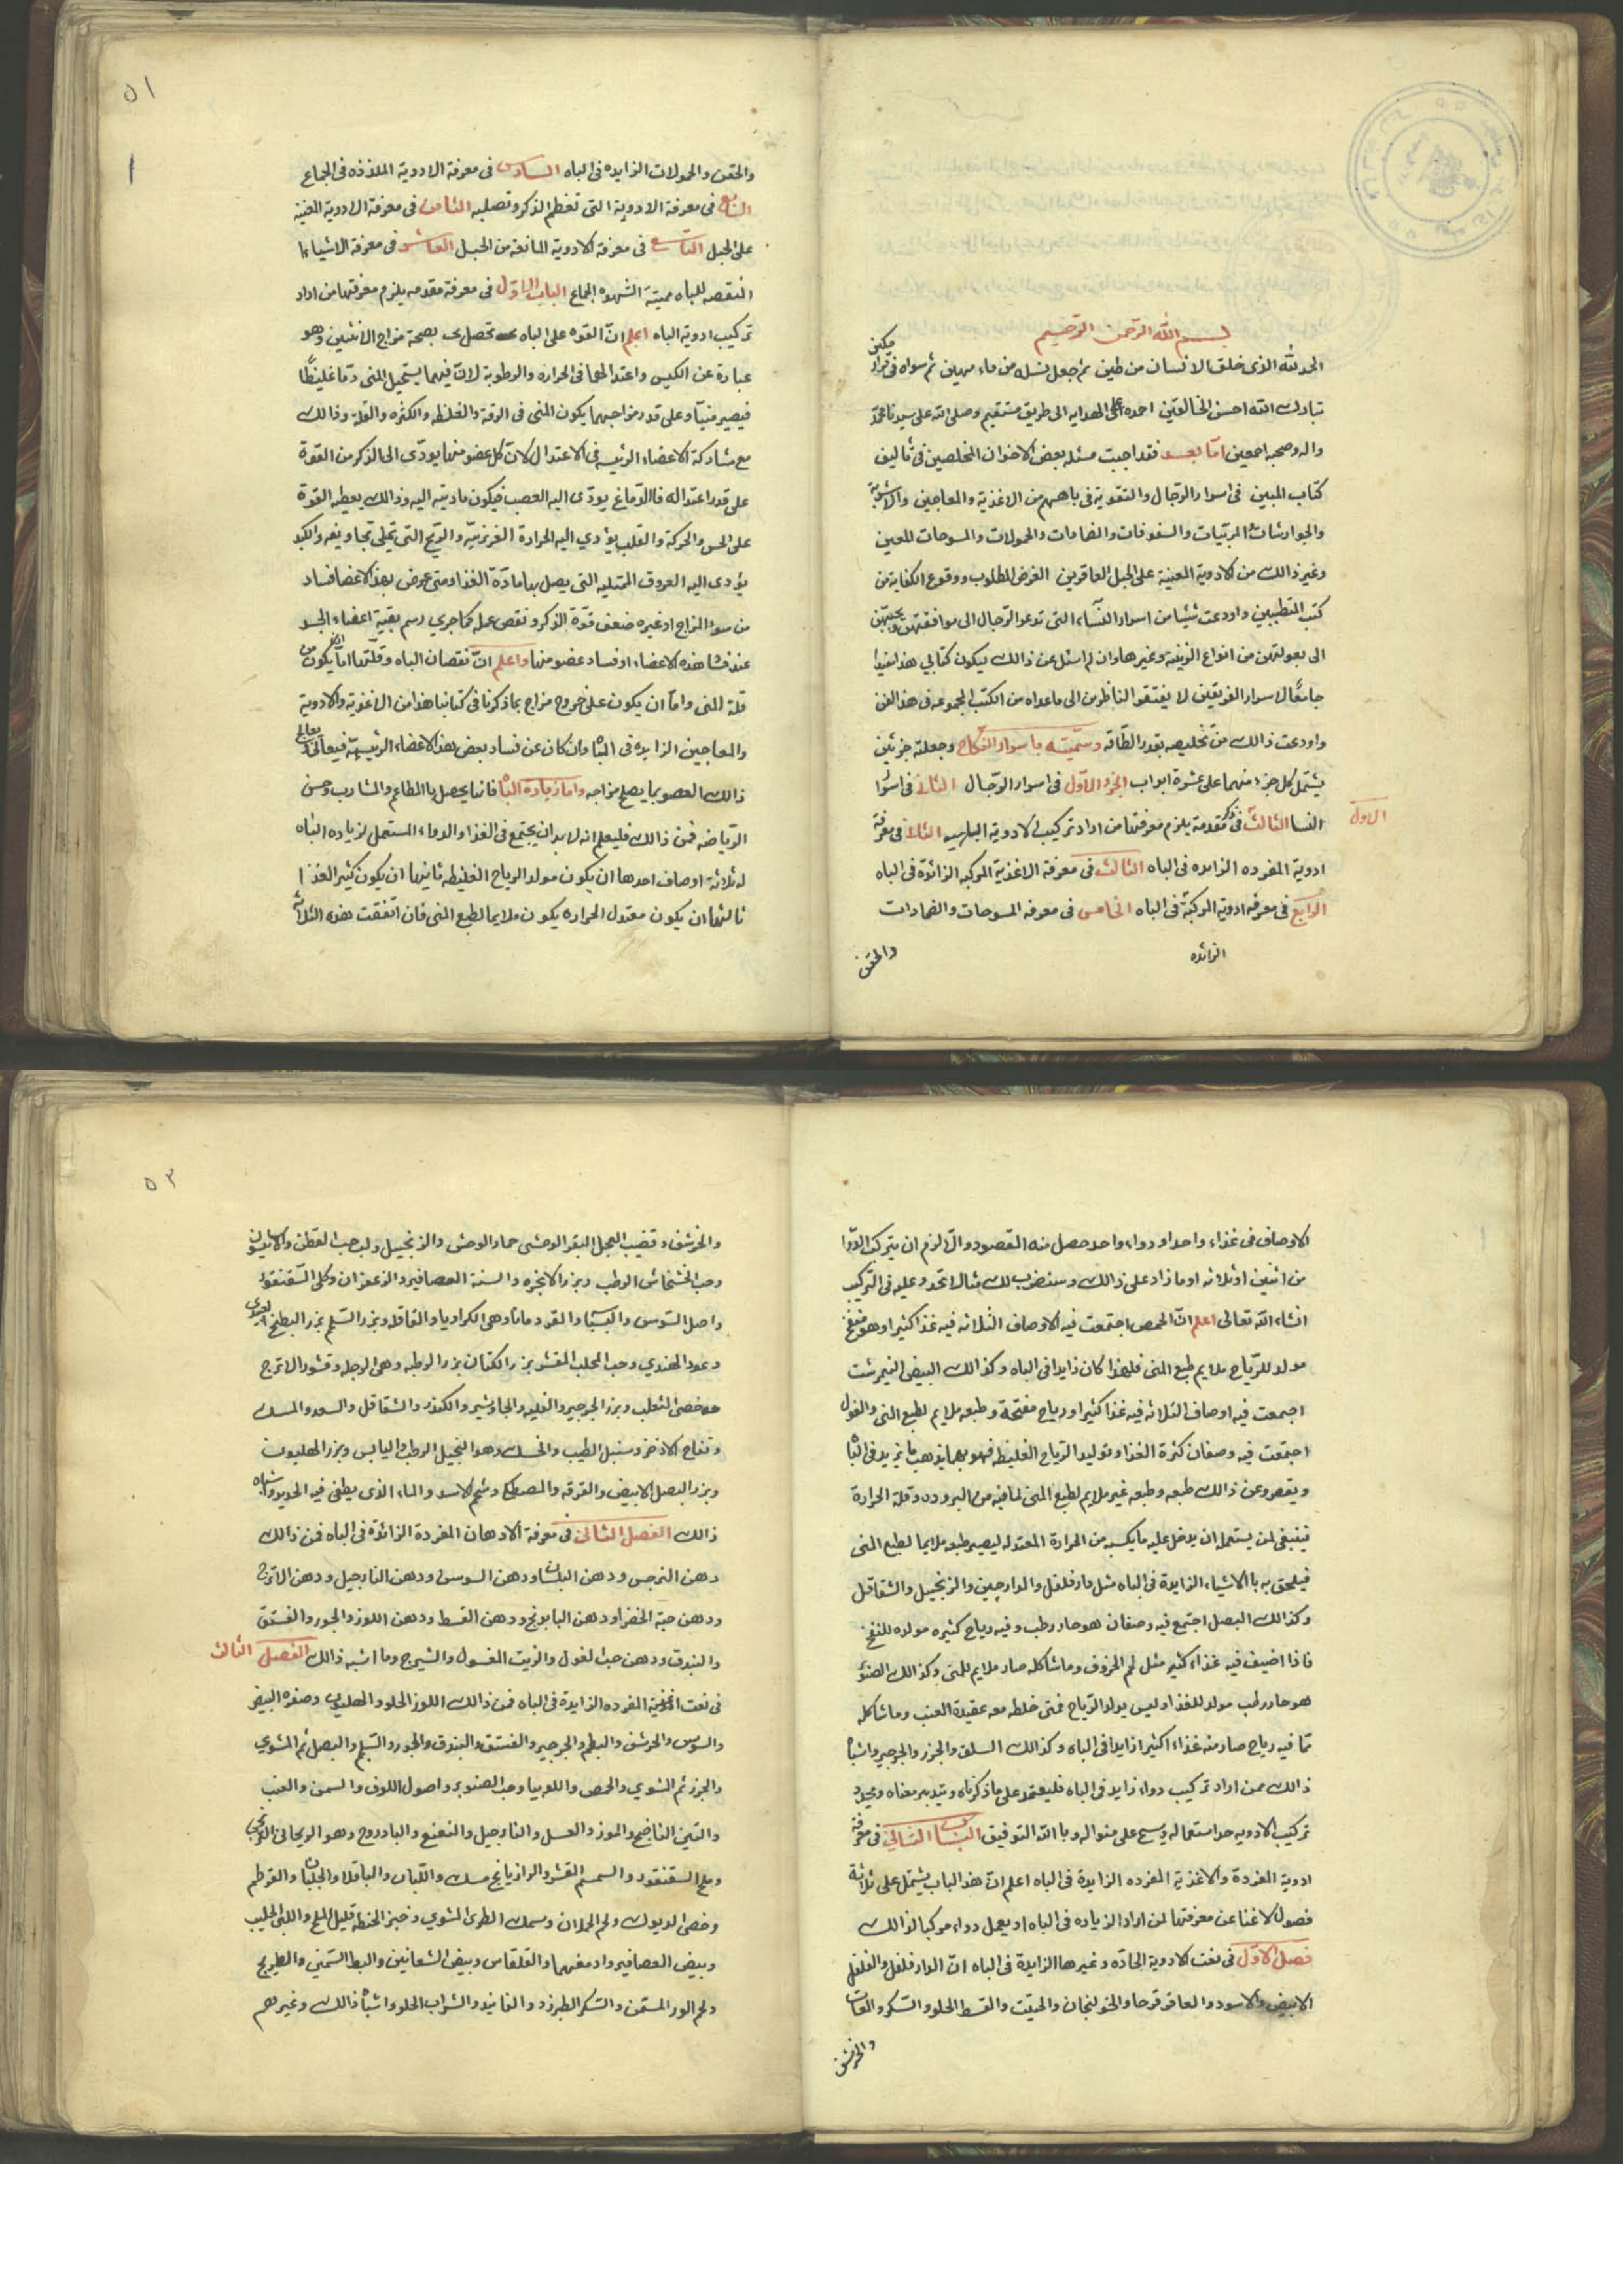 بسم الله الرحمن الرحيم
الحمد لله الذى خلق الانسان من طين ثم جعل نسله من ماء مهين ثم سواه فى قرار مكين
تبارك الله احسن الخالقين احمده على الهدايه الى طريق مستقيم وصلى الله على سيدنا محمد
واله وصحبه اجمعين اما بعد فقد اجبت مسئله بعض الاخوان المخلصين فى تاليف
كتاب المبين فى اسرار الرجال والتقوية فى باههم من الاغذية والمعاجين والاشربة
والجوارشات المربيات والسفوفات والضمادات والحمولات والمسوحات للمعين
وغير ذالك من الادوية المعينة على الحبل العاقرين الغرض المطلوب ووقوع الكفاية من
كتب المتطببين واودعت شيئا من اسرار النساء التى تدعو الرجال الى موافقتهن
الى بعولتهن من انواع الزينة وغيرها وان لم اسئل عن ذالك ليكون كتابي هذا مفيدا
جامعًا لاسرار الفريقين لا يفتقر الناظر من الى ما عداه من الكتب المجموعه فى هذا الفن
واودعت ذالك من تخليصه بقدر الطاقه وسميته باسرار النكاح وجعلته جزئين
يشتمل كل جزء منهما على عشرة ابواب الجزء الاول فى اسرار الرجال الثانى فى اسرار
الاول
النسا الثالث فى مقدمة يلزم معرفتها من اراد تركيب الادوية الثانى فى معرفة
ادوية المفرده الزايده فى الباه الثالث فى معرفة الاغذية المركبه الزائدة فى الباه
الرابع فى معرفه ادوية المركبة فى الباه الخامس فى معرفه المسوحات والضمادات
الزائده
والحقن
٥١
١
والحقن والحمولات الزايده فى الباه السادس فى معرفة الادوية الملذذه فى الجماع
السابع فى معرفة الادوية التى تعظم الذكر وتصلبه الثامن فى معرفة الادوية المعينة
على الحبل التاسع فى معرفة الادوية المانعه من الحبل العاشر فى معرفة الاشياء
المنقصه للباه مميتة الشهوه الجماع الباب الاول فى معرفة مقدمه يلزم معرفتها من اراد
تركيب ادوية الباه اعلم ان القوه على الباه تحصل بصحة مزاج الانثيين وهو
عبارة عن الكيس واعتدالهما فى الحراره والرطوبة لان فيهما يستحيل المنى دما غليظًا
فيصير منيا وعلى قدر مزاجهما يكون المنى فى الرقة والغلظه والكثره والقلة وذالك
مع مشاركة الاعضاء الرئيسه فى الاعتدال لان كل عضو منها يودى الى الذكر من القوة
على قدر اعتداله فالدماغ يودى اليه العصب فيكون ماديته اليه وذالك يعطيه القوة
على الحس والحركة والقلب يؤدي اليه الحرارة الغريزيه والريح التى تملى تجاويفه والكبد
يؤدى اليه العروق الممتليه التى يصل بها مادة الغذا ومتى عرض بهذ الاعضا فساد
من سوء المزاج او غيره ضعف قوة الذكر ونقص عمله كما جري رسم بقية اعضاء الجسد
عند فساد هذه الاعضاء او فساد عضو منها واعلم ان نقصان الباه وقلتها اما ان يكون من
قلة المنى واما ان يكون على خروج مزاج بما ذكرنا فى كتابنا هذا من الاغذية والادوية
والمعاجين الزايده فى الباه وان كان عن فساد بعض هذ الاعضاء الرئيسة فيعالج
ذالك العضو بما يصلح مزاجه واما زيادة الباه فانما يحصل باالمطاعم والمشارب وحسن
الرياضه فمن ذالك فليعلم انه لا بد ان يجتمع فى الغذا والدواء المستعمل لزياده الباه
له ثلاثة اوصاف احدها ان يكون مولد الرياح الغليظه ثانيها ان يكون كثير الغذا
ثالثها ان يكون معتدل الحراره يكون ملايما لطبع المنى فان اتفقت هذه الثلاثة
الاوصاف فى غذاء واحد او دواء واحد حصل منه المقصود والا لزم ان يتركب الدوا
من اثنين او ثلاثه او ما زاد على ذالك وسنضرب لك مثالا تحدو عليه فى التركيب
انشاء الله تعالى اعلم ان الحمص اجتمعت فيه الاوصاف الثلاثه فيه غذا كثيرا وهو منفخ
مولد للرياح ملايم طبع المنى فلهذا كان زايدا فى الباه وكذالك البيض النيمرشت
اجمعت فيه اوصاف الثلاثه فيه غذا كثيرا ورياح منفخة وطبعه ملايم لطبع المنى والفول
اجتمعت فيه وصفان كثرة الغذا وتوليد الرياح الغليظه فهو بهما يزيد فى الباه
ويقصر وعن ذالك طبعه وطبعه غير ملايم لطبع المنى لما فيه من البروده وقلة الحرارة
فينبغى لمن يستعمله ان يدخل عليه ما يكسبه من الحرارة المعتدله ليصير طبعه ملايما لطبع المنى
فيلحق به باالاشياء الزايدة فى الباه مثل دارفلفل والدارجين والزنجبيل والشقاقل
وكذالك البصل اجتمع فيه وصفان هو حار رطب وفيه رياح كثيره مولده للنفخ
فاذا اضيف فيه غذاء كثير مثل لحم الخروف وما شاكله صار ملايم للمنى وكذالك الصنوبر
هو حار رطب مولد للغذا وليس يولد الرياح فمتى خلطه معه عقيدة العنب وما شاكله
مما فيه رياح صار منه غذاء اكثيرا زايدا فى الباه وكذالك السلق والجزر والجرجير واشباه
ذالك ممن اراد تركيب دواء زايد فى الباه فليعتمد على ما ذكرناه ويتدبر معناه ويجدد
تركيب الادويه حد استعماله وينسج على منواله وباالله التوفيق الباب الثاني فى معرفة
ادوية المفردة والاغذية المفرده الزايدة فى الباه اعلم ان هذ الباب يشتمل على ثلاثة
فصول لا غنا عن معرفتها لمن اراد الزياده فى الباه او يعمل دواء مركبا لذالك
فصل الاول فى نعت الادوية الحاده وغيرها الزايدة فى الباه ان الدارفلفل والفلفل
الابيض والاسود والعاقرقرحا والخولنجان والحلتيت والقسط الحلو والسكر
والخرشف
٥٣
والخرشف وقضيب العجل البقر الوحشى حمار الوحش والزنجبيل ولب حب القطن
وحب الخشخاش الرطب وبزر الانجره والسنة العصافير والزعفران وكلى السقنقور
واصل السوس والبسباسه والقردمانا وهى الكراويا والقاقله وبزر الشلجم بزر البطيخ
وعود الهندي وحب المحلب المقشر بزر الكتان بزر الرطبه وهى الرجله وقشور الاترج
خصى الثعلب وبزر الجرجير والجاوشير والكندر والشقاقل والسعد والمسك
وتفاح الاذخر وسنبل الطيب والخسك وهو النجيل الرطب واليابس وبزر الهليون
وبزر البصل الابيض والقرفه والمصطكى وشحم الاسد والماء الذى يطفى فيه الحديد واشباه
ذالك الفصل الثانى فى معرفة الادهان المفردة الزائدة فى الباه فمن ذالك
دهن النرجس ودهن البلسان ودهن السوسن ودهن النارجيل ودهن الاترج
ودهن حبة الخضرا ودهن البابونج ودهن القسط ودهن اللوز والجوز والفستق
والبندق ودهن حب الفول والزيت المغسول والشيرج وما اشبه ذالك الفصل الثالث
فى نعت اغذية المفرده الزايدة فى الباه فمن ذالك اللوز الحلو والهليون وصفره البيض
والسوس والخرشف والبطم والجرجير والفستق والبندق والجوز والشلجم والبصل ثم المشوي
والجزر ثم الشوي والحمص واللوبيا وحب الصنوبر واصول اللوف والسمن والعنب
والتين الناضج والموز والعسل والنارجيل والنعنع والبادروج وهو الريحانى
وملح السقنقور والسمسم المقشر والرازيانج مسك واللبان والباقلا والجلبان والقرطم
وخصى الديوك ولحم الحملان وسمك الطرى الشوي وخبز الحنطه قليل الملح واللبن الحليب
وبيض العصافير وادمغيهما والقلقاس وبيض الشعانين والبط السمين والطيهوج
ولحم الوز المسمن والسكر الطبرزد والفانيد والشراب الحلو واشباه ذالك وغيرهم